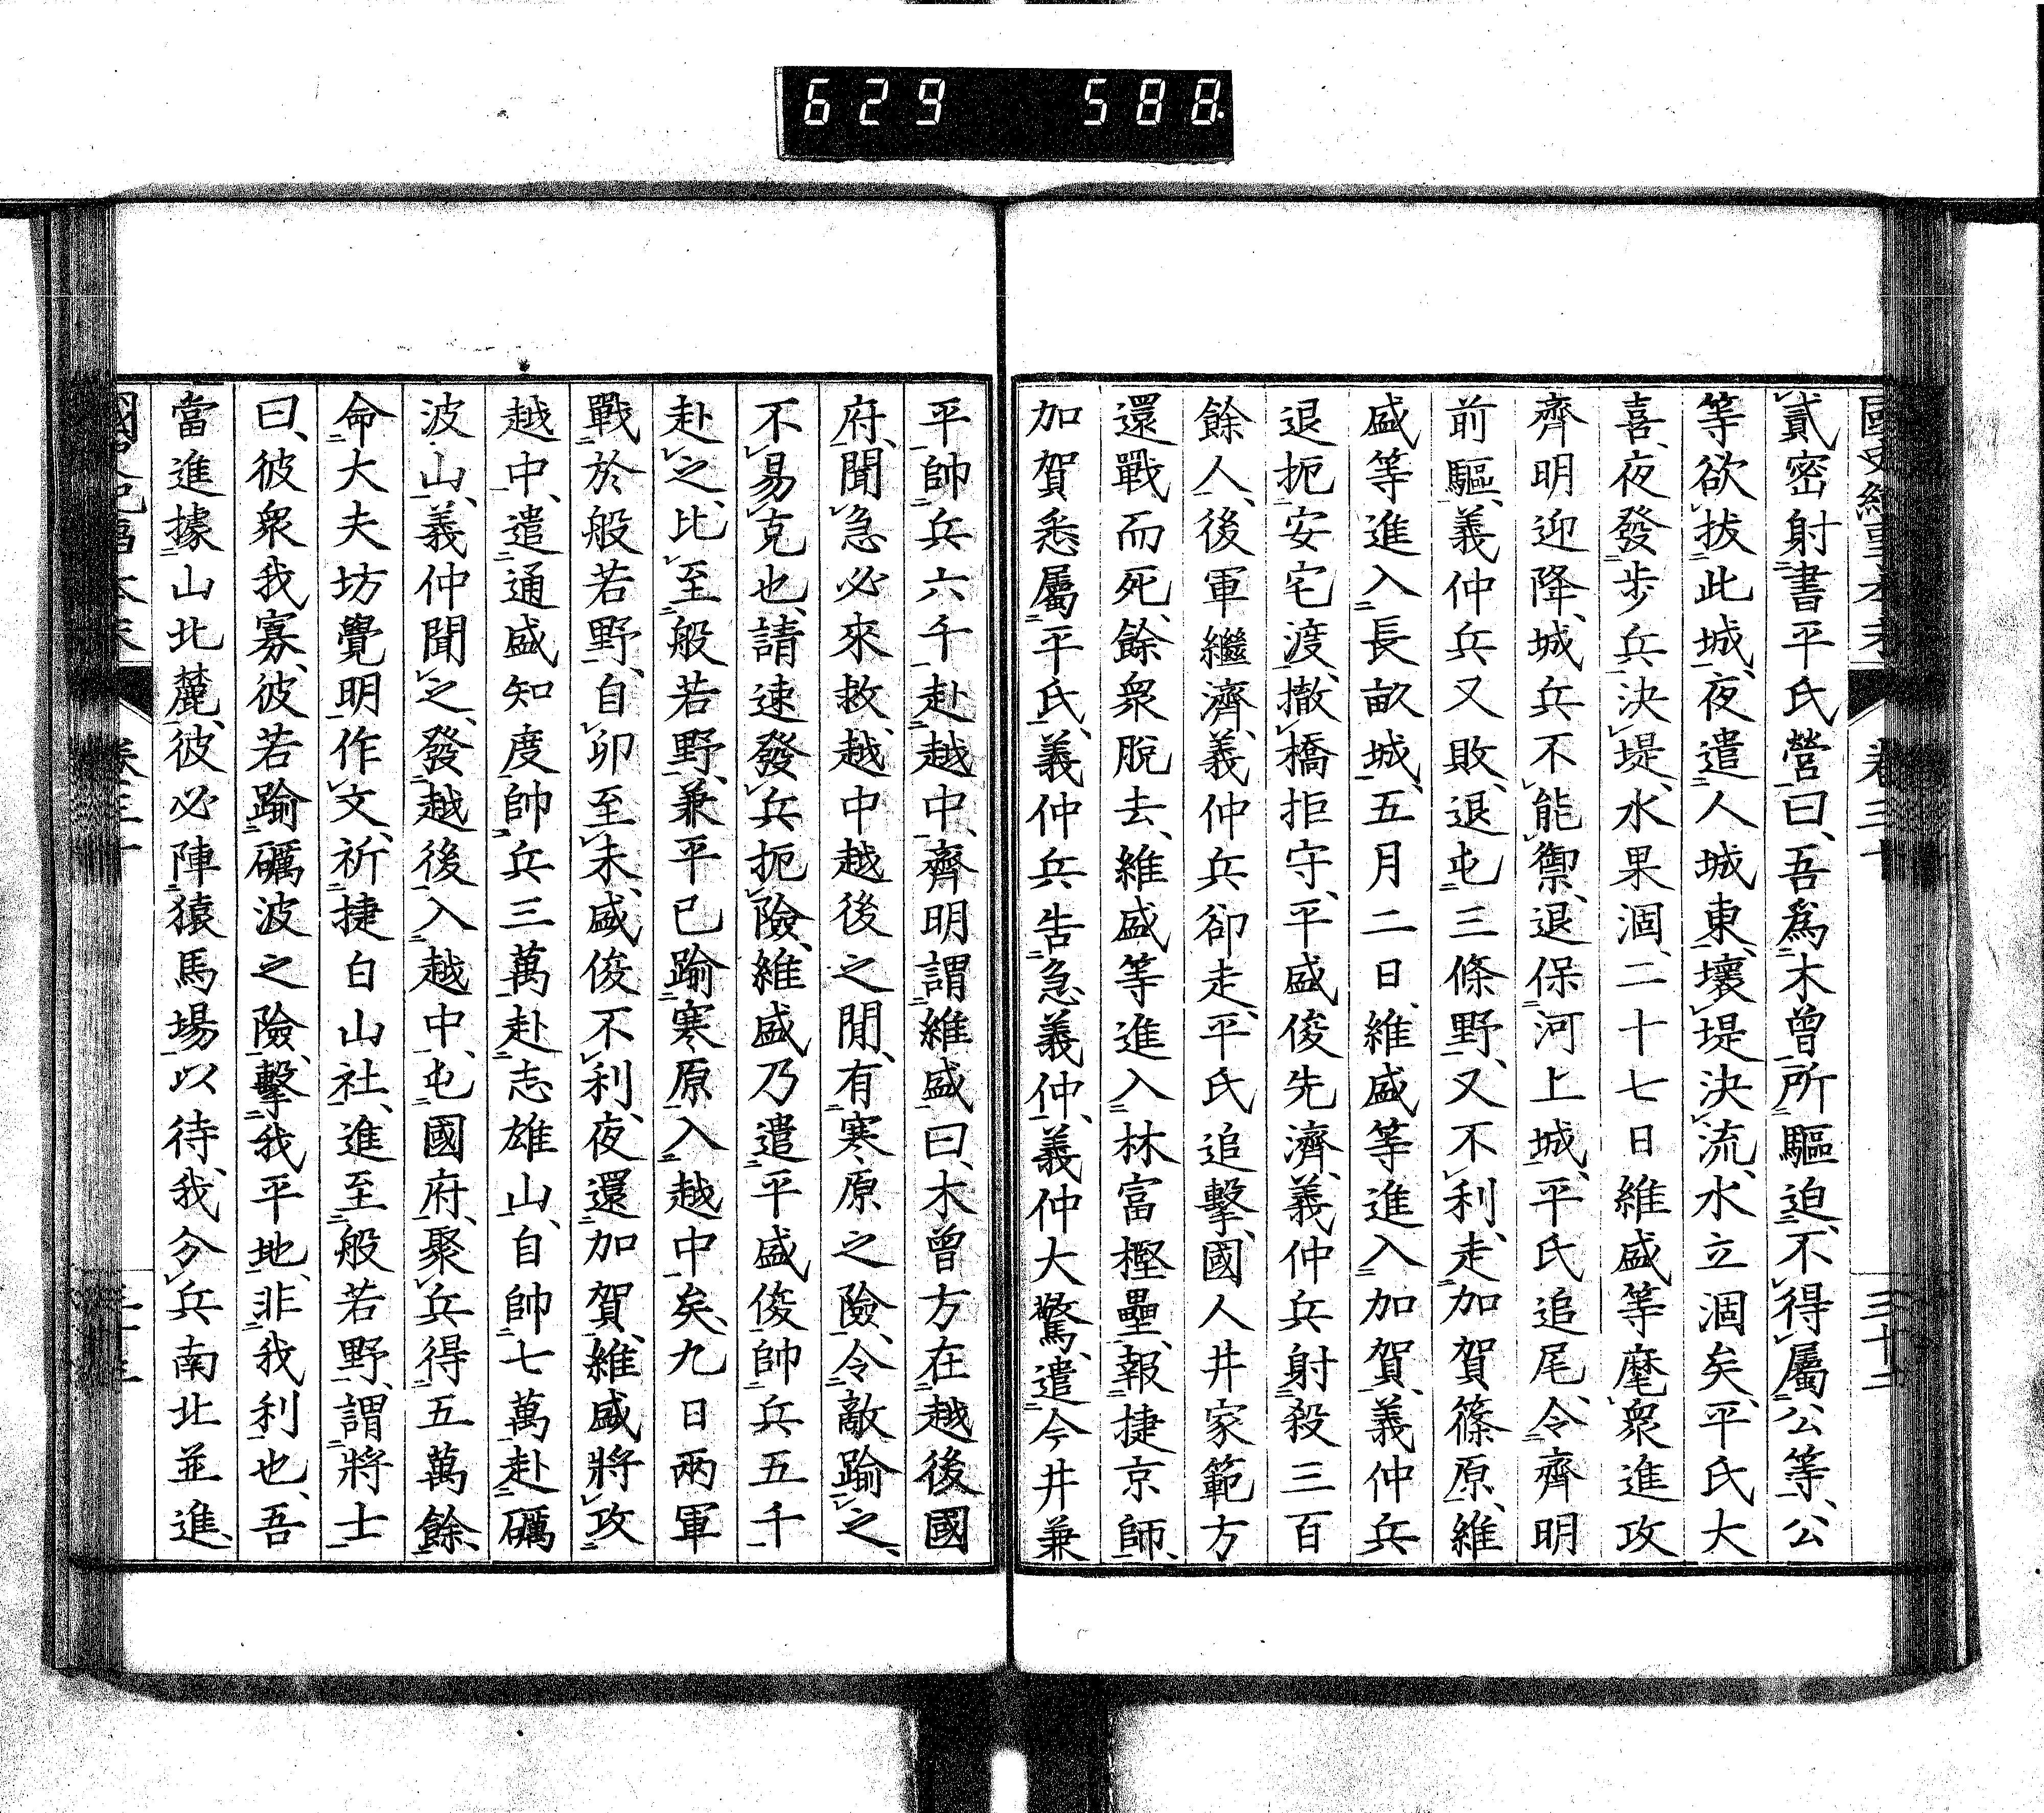 629 588
貳密射書平氏營曰、吾爲木曾所驅迫、不得屬公等、公
等欲拔此城、夜遣人城東、壞堤決流、水立涸矣、平氏大
喜、夜發步兵決堤、水果涸、二十七日維盛等麾衆進攻
齊明迎降、城兵不能禦、退保河上城、平氏追尾、令齊明
前驅、義仲兵又敗、退屯三條野、又不利、走加賀篠原、維
盛等進入長畝城、五月二日、維盛等進入加賀、義仲兵
退扼安宅渡、撤橋拒守、平盛俊先濟、義仲兵射殺三百
餘人、後軍繼濟、義仲兵卻走、平氏追擊、國人井家範方
還戰而死、餘衆脫去、維盛等進入林富樫壘、報捷京師、
加賀悉屬平氏、義仲兵告急義仲、義仲大驚、遣今井兼
平帥兵六千赴越中、齊明謂維盛曰、木曾方在越後國
府、聞急必來救、越中越後之閒、有寒原之險、令敵踰之、
不易克也、請速發兵扼險、維盛乃遣平盛俊帥兵五千
赴之、比至般若野、兼平已踰寒原入越中矣、九日兩軍
戰於般若野、自卯至未、盛俊不利、夜還加賀、維盛將攻
越中、遣通盛知度帥兵三萬赴志雄山、自帥七萬赴礪
波山、義仲聞之、發越後入越中、屯國府、聚兵得五萬餘、
命大夫坊覺明作文、祈捷白山社、進至般若野、謂將士
曰、彼衆我寡、彼若踰礪波之險、擊我平地、非我利也、吾
當進據山北麓、彼必陣猿馬場以待、我分兵南北並進、